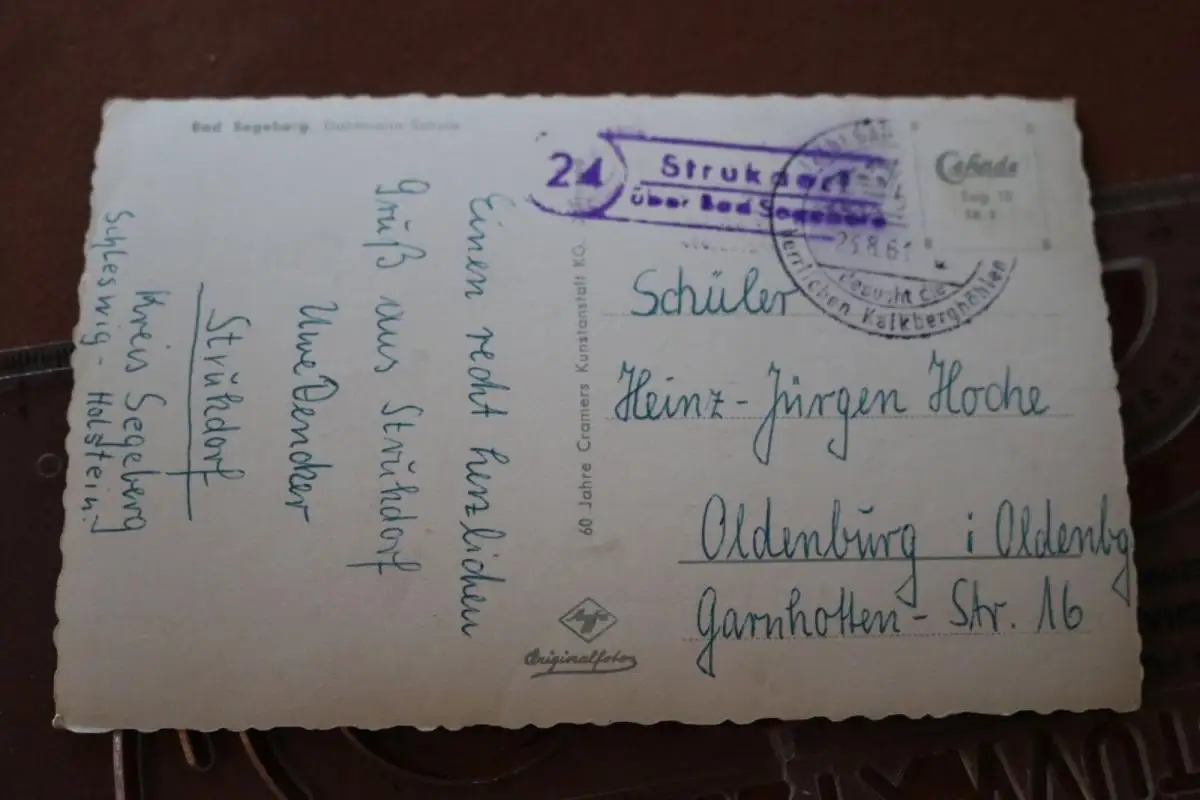 Bad Segeberg. Dahlmann-Schule
Einen recht herzlichen
Gruß aus Strukdorf
Uwe Dencker
Strukdorf
Kreis Segeberg
Schleswig - Holstein
60 Jahre Cramers Kunstanstalt KG.
Agfa
Originalfoto
24
Strukdorf
über Bad Segeberg
25.8.61
besucht die
herrlichen Kalkberghöhlen
Cekade
Schüler
Heinz - Jürgen Hoche
Oldenburg i Oldenbg
Garnholten - Str. 16